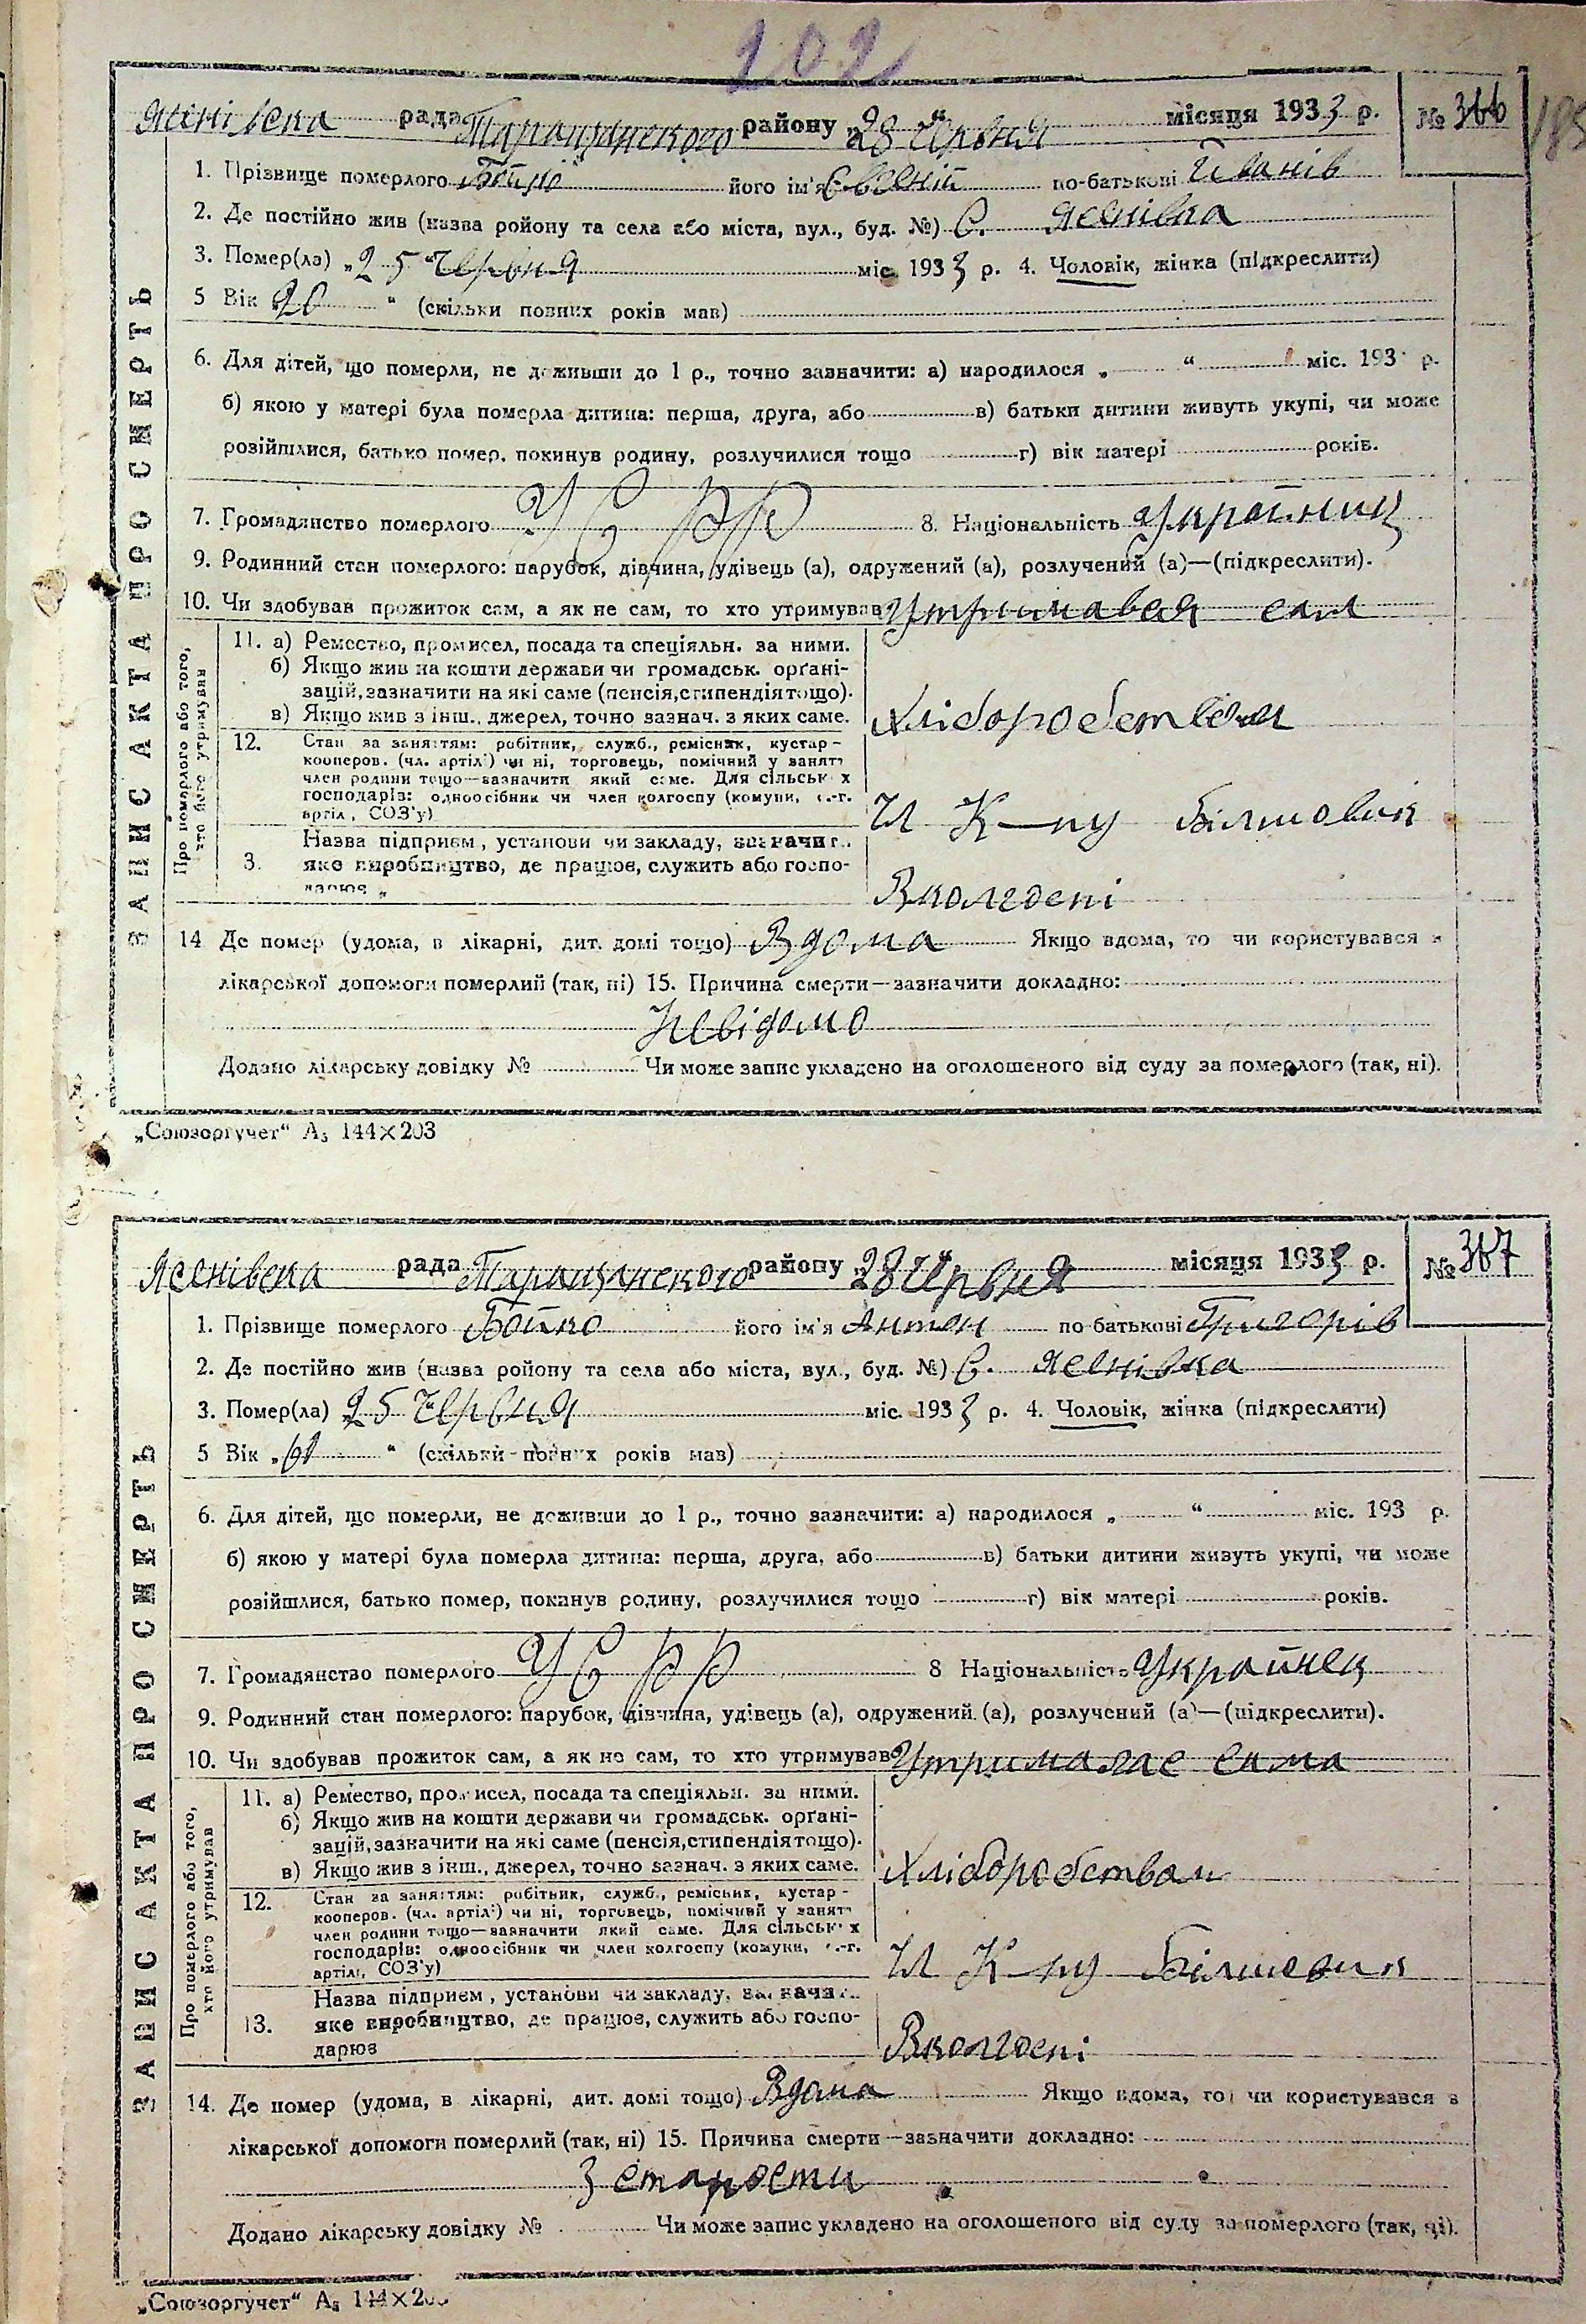 202
Яснівска рада Таращанского району „28“ Червня місяця 1933 р. № 366
1. Прізвище померлого Бойко його ім'я Євгеній по-батькові Йванів
2. Де постійно жив (назва ройону та села або міста, вул., буд. №) С. Яснівка
3. Помер(ла) „25“ Червня міс. 1933 р. 4. Чоловік, жінка (підкреслити)
5 Вік „20“ (скільки повних років мав)
6. Для дітей, що померли, не доживши до 1 р., точно зазначити: а) народилося „ “ міс. 193 р.
б) якою у матері була померла дитина: перша, друга, або в) батьки дитини живуть укупі, чи може
розійшлися, батько помер, покинув родину, розлучилися тощо г) вік матері років.
7. Громадянство померлого УСРР 8. Національність Україниц
9. Родинний стан померлого: парубок, дівчина, удівець (а), одружений (а), розлучений (а)—(підкреслити).
10. Чи здобував прожиток сам, а як не сам, то хто утримував Утримався сам
ЗАПИС АКТА ПРО СМЕРТЬ
Про померлого або того, хто його утримував
11. а) Ремество, промисел, посада та спеціяльн. за ними.
б) Якщо жив на кошти держави чи громадськ. орґані-
зацій, зазначити на які саме (пенсія, стипендія тощо).
в) Якщо жив з інш., джерел, точно зазнач. з яких саме. Хліборобством
12. Стан за заняттям: робітник, служб., ремісник, кустар-
кооперов. (чл. артілі) чи ні, торговець, помічний у занятт
член родини тощо—зазначити який саме. Для сільськ х
господарів: одноосібник чи член колгоспу (комуни, с.-г.
артіл, СОЗ'у) Чл К-пу Більшовик
Назва підприєм, установи чи закладу, зазначит.
3. яке виробництво, де працює, служить або госпо-
дарює Вколгоспі
14 Де помер (удома, в лікарні, дит. домі тощо) Вдома Якщо вдома, то чи користувався з
лікарської допомоги померлий (так, ні) 15. Причина смерти—зазначити докладно:
Невідомо
Додано лікарську довідку № Чи може запис укладено на оголошеного від суду за померлого (так, ні).
„Союзоргучет“ А₅ 144×203
Ясенівска рада Таращанского району „28“ Червня місяця 1933 р. № 367
1. Прізвище померлого Бойко його ім'я Антон по батькові Григорів
2. Де постійно жив (назва ройону та села або міста, вул., буд. №) С. Яснівка
3. Помер(ла) 25 Червня міс. 1933 р. 4. Чоловік, жінка (підкреслити)
5 Вік „61“ (скільки повних років мав)
6. Для дітей, що померли, не доживши до 1 р., точно зазначити: а) народилося „ “ міс. 193 р.
б) якою у матері була померла дитина: перша, друга, або в) батьки дитини живуть укупі, чи може
розійшлися, батько помер, покинув родину, розлучилися тощо г) вік матері років.
7. Громадянство померлого УСРР 8 Національність Українец
9. Родинний стан померлого: парубок, дівчина, удівець (а), одружений (а), розлучений (а)—(підкреслити).
10. Чи здобував прожиток сам, а як не сам, то хто утримував сама
ЗАПИС АКТА ПРО СМЕРТЬ
Про померлого або того, хто його утримував
11. а) Ремество, промисел, посада та спеціяльн. за ними.
б) Якщо жив на кошти держави чи громадськ. орґані-
зацій, зазначити на які саме (пенсія, стипендія тощо).
в) Якщо жив з інш., джерел, точно зазнач. з яких саме. Хліборобствам
12. Стан за заняттям: робітник, служб., ремісник, кустар-
кооперов. (чл. артілі) чи ні, торговець, помічний у занятт
член родини тощо—зазначити який саме. Для сільськ х
господарів: одноосібник чи член колгоспу (комуни, с.-г.
артілі, СОЗ'у) Чл К-пу Більшевик
Назва підприєм, установи чи закладу, зазначит.
13. яке виробництво, де працює, служить або госпо-
дарює Вколгоспі
14. Де помер (удома, в лікарні, дит. домі тощо) Вдома Якщо вдома, то чи користувався з
лікарської допомоги померлий (так, ні) 15. Причина смерти—зазначити докладно:
З старости
Додано лікарську довідку № Чи може запис укладено на оголошеного від суду за померлого (так, ні).
„Союзоргучет“ А₅ 144×20